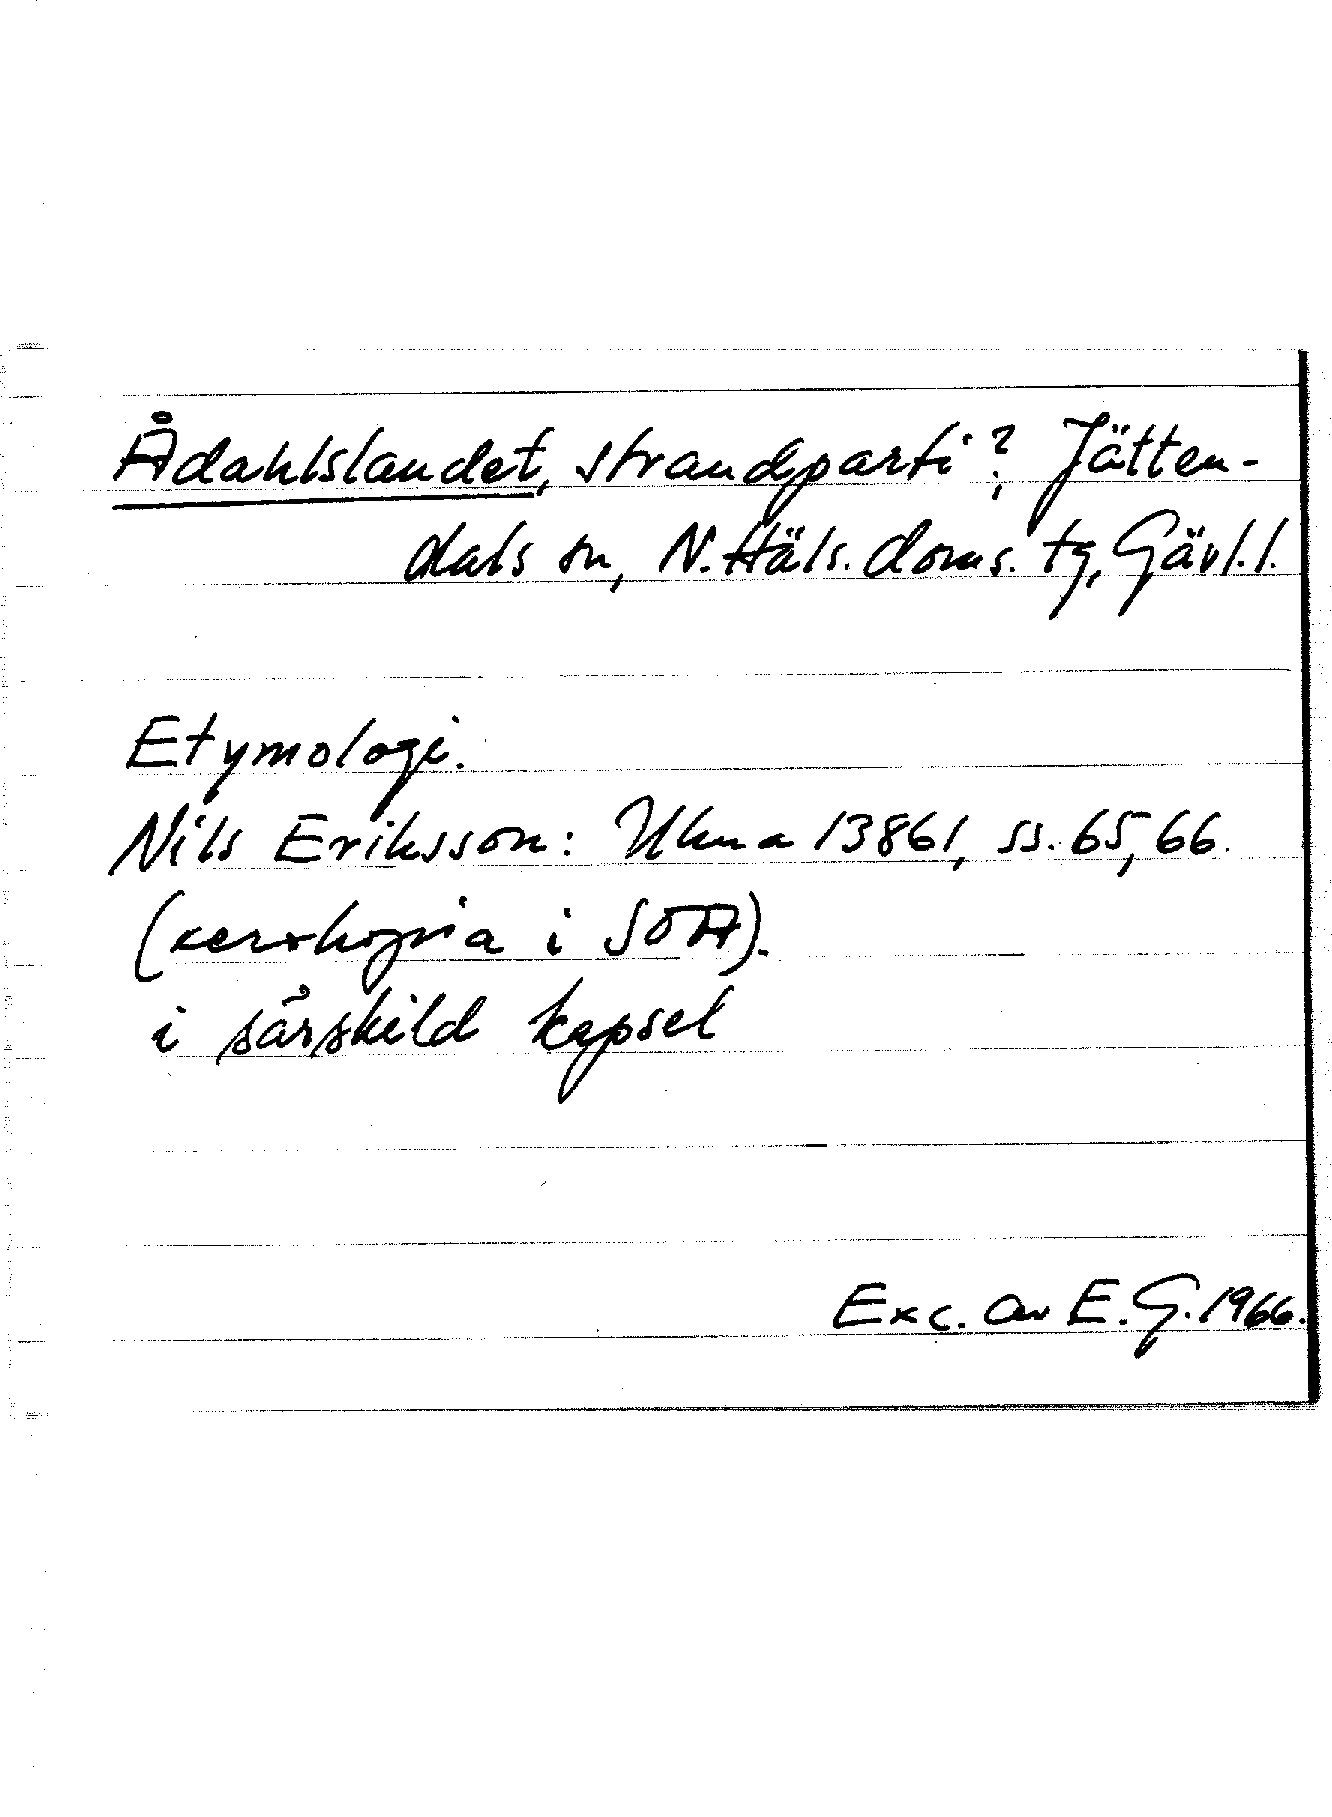 Ådahlslandet, strandparti?, Jätten-
dals sn, N. Häls. doms. tg, Gävl. l.
Etymologi.
Nils Eriksson: Ukna 13861, ss. 65, 66.
(xeroxkopia i SOA).
i särskild kapsel
Exc. av E. G. 1966.